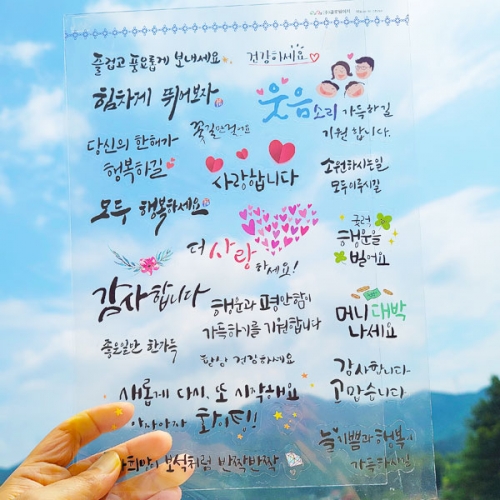 즐겁고 풍요롭게 보내세요
건강하세요
힘차게 뛰어보자
웃음
소리 가득하길
기원 합니다.
꽃길만걸어요
당신의 한해가
행복하길
사랑합니다
소원하시는일
모두이루시길
모두 행복하세요
더 사랑
하세요!
굿럭
행운을
빌어요
감사합니다
행운과 평안함이
가득하기를 기원합니다
머니대박
나세요
좋은일만 한가득
항상 건강하세요
감사합니다
고맙습니다
새롭게 다시, 또 시작해요
아자아자 화이팅!
늘 기쁨과 행복이
가득하시길
보석처럼 반짝반짝